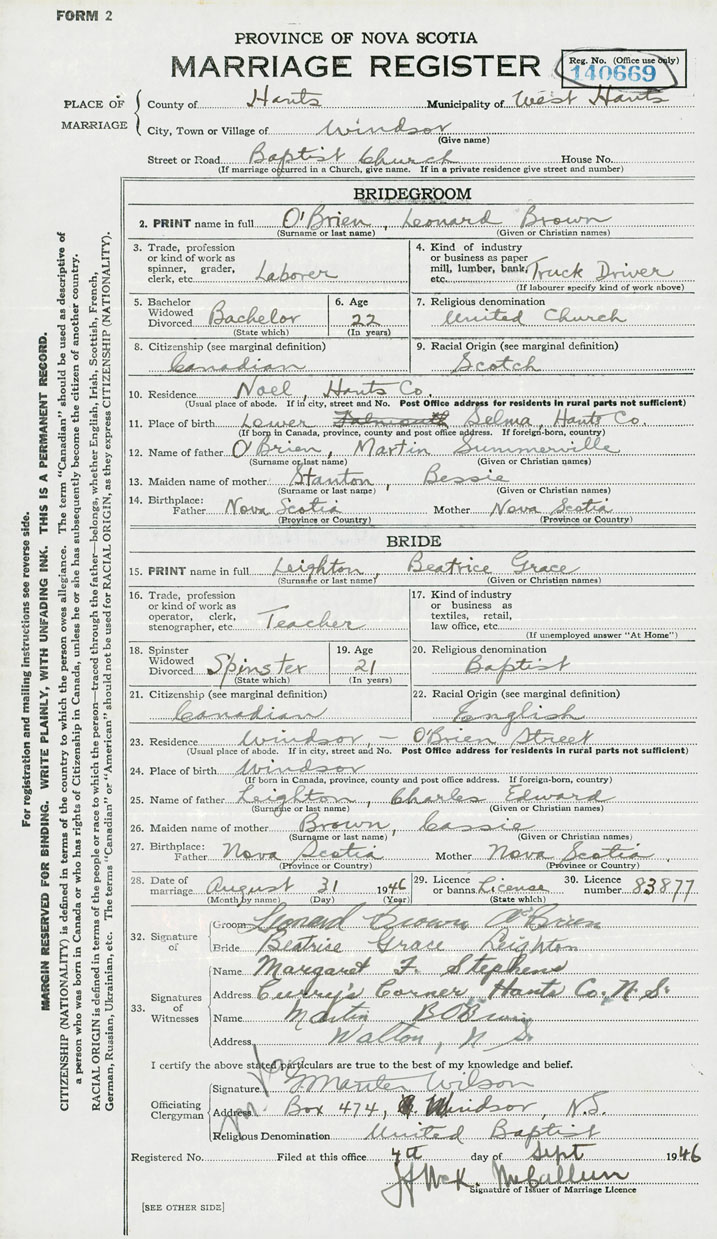 FORM 2
PROVINCE OF NOVA SCOTIA
MARRIAGE REGISTER
Reg. No. (Office use only)
140669
PLACE OF MARRIAGE
County of Hants Municipality of West Hants
City, Town or Village of Windsor
(Give name)
Street or Road Baptist Church House No.
(If marriage occurred in a Church, give name. If in a private residence give street and number)
BRIDEGROOM
2. PRINT name in full O'Brien, Leonard Brown
(Surname or last name) (Given or Christian names)
3. Trade, profession or kind of work as spinner, grader, clerk, etc. Laborer
4. Kind of industry or business as paper mill, lumber, bank, etc. Truck Driver
(If labourer specify kind of work above)
5. Bachelor Widowed Divorced Bachelor
(State which)
6. Age 22
(In years)
7. Religious denomination
United Church
8. Citizenship (see marginal definition)
Canadian
9. Racial Origin (see marginal definition)
Scotch
10. Residence Noel, Hants Co.
(Usual place of abode. If in city, street and No. Post Office address for residents in rural parts not sufficient)
11. Place of birth Lower Selma, Hants Co.
(If born in Canada, province, county and post office address. If foreign-born, country)
12. Name of father O'Brien, Martin Summerville
(Surname or last name) (Given or Christian names)
13. Maiden name of mother Stanton, Bessie
(Surname or last name) (Given or Christian names)
14. Birthplace: Father Nova Scotia Mother Nova Scotia
(Province or Country) (Province or Country)
BRIDE
15. PRINT name in full Leighton, Beatrice Grace
(Surname or last name) (Given or Christian names)
16. Trade, profession or kind of work as operator, clerk, stenographer, etc. Teacher
17. Kind of industry or business as textiles, retail, law office, etc.
(If unemployed answer "At Home")
18. Spinster Widowed Divorced Spinster
(State which)
19. Age 21
(In years)
20. Religious denomination
Baptist
21. Citizenship (see marginal definition)
Canadian
22. Racial Origin (see marginal definition)
English
23. Residence Windsor, - O'Brien Street
(Usual place of abode. If in city, street and No. Post Office address for residents in rural parts not sufficient)
24. Place of birth Windsor
(If born in Canada, province, county and post office address. If foreign-born, country)
25. Name of father Leighton, Charles Edward
(Surname or last name) (Given or Christian names)
26. Maiden name of mother Brown, Cassie
(Surname or last name) (Given or Christian names)
27. Birthplace: Father Nova Scotia Mother Nova Scotia
(Province or Country) (Province or Country)
28. Date of marriage August 31 1946
(Month by name) (Day) (Year)
29. Licence or banns License
(State which)
30. Licence number 83877
32. Signature of
Groom Leonard Brown O'Brien
Bride Beatrice Grace Leighton
33. Signatures of Witnesses
Name Margaret F. Stephens
Address Curry's Corner Hants Co. N.S.
Name Martin B O'Brien
Address Walton, N.S.
I certify the above stated particulars are true to the best of my knowledge and belief.
Officiating Clergyman
Signature Manter Wilson
Address Box 474, Windsor, N.S.
Religious Denomination United Baptist
Registered No. Filed at this office 4th day of Sept 1946
McK. McCallum
Signature of Issuer of Marriage Licence
[SEE OTHER SIDE]
For registration and mailing instructions see reverse side.
MARGIN RESERVED FOR BINDING. WRITE PLAINLY, WITH UNFADING INK. THIS IS A PERMANENT RECORD.
CITIZENSHIP (NATIONALITY) is defined in terms of the country to which the person owes allegiance. The term "Canadian" should be used as descriptive of
a person who was born in Canada or who has rights of Citizenship in Canada, unless he or she has subsequently become the citizen of another country.
RACIAL ORIGIN is defined in terms of the people or race to which the person—traced through the father—belongs, whether English, Irish, Scottish, French,
German, Russian, Ukrainian, etc. The terms "Canadian" or "American" should not be used for RACIAL ORIGIN, as they express CITIZENSHIP (NATIONALITY).